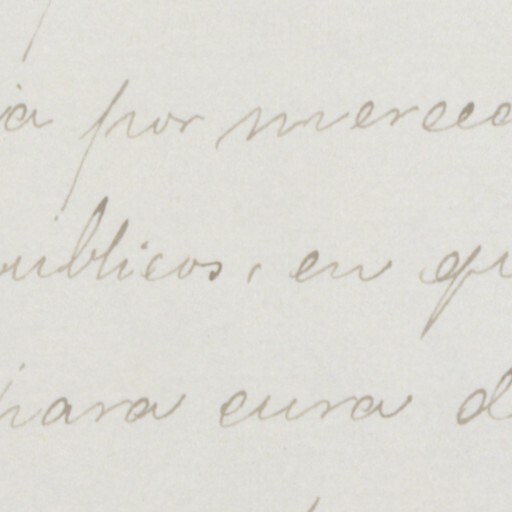 ia por merced
ublicos, en qu
para cura d